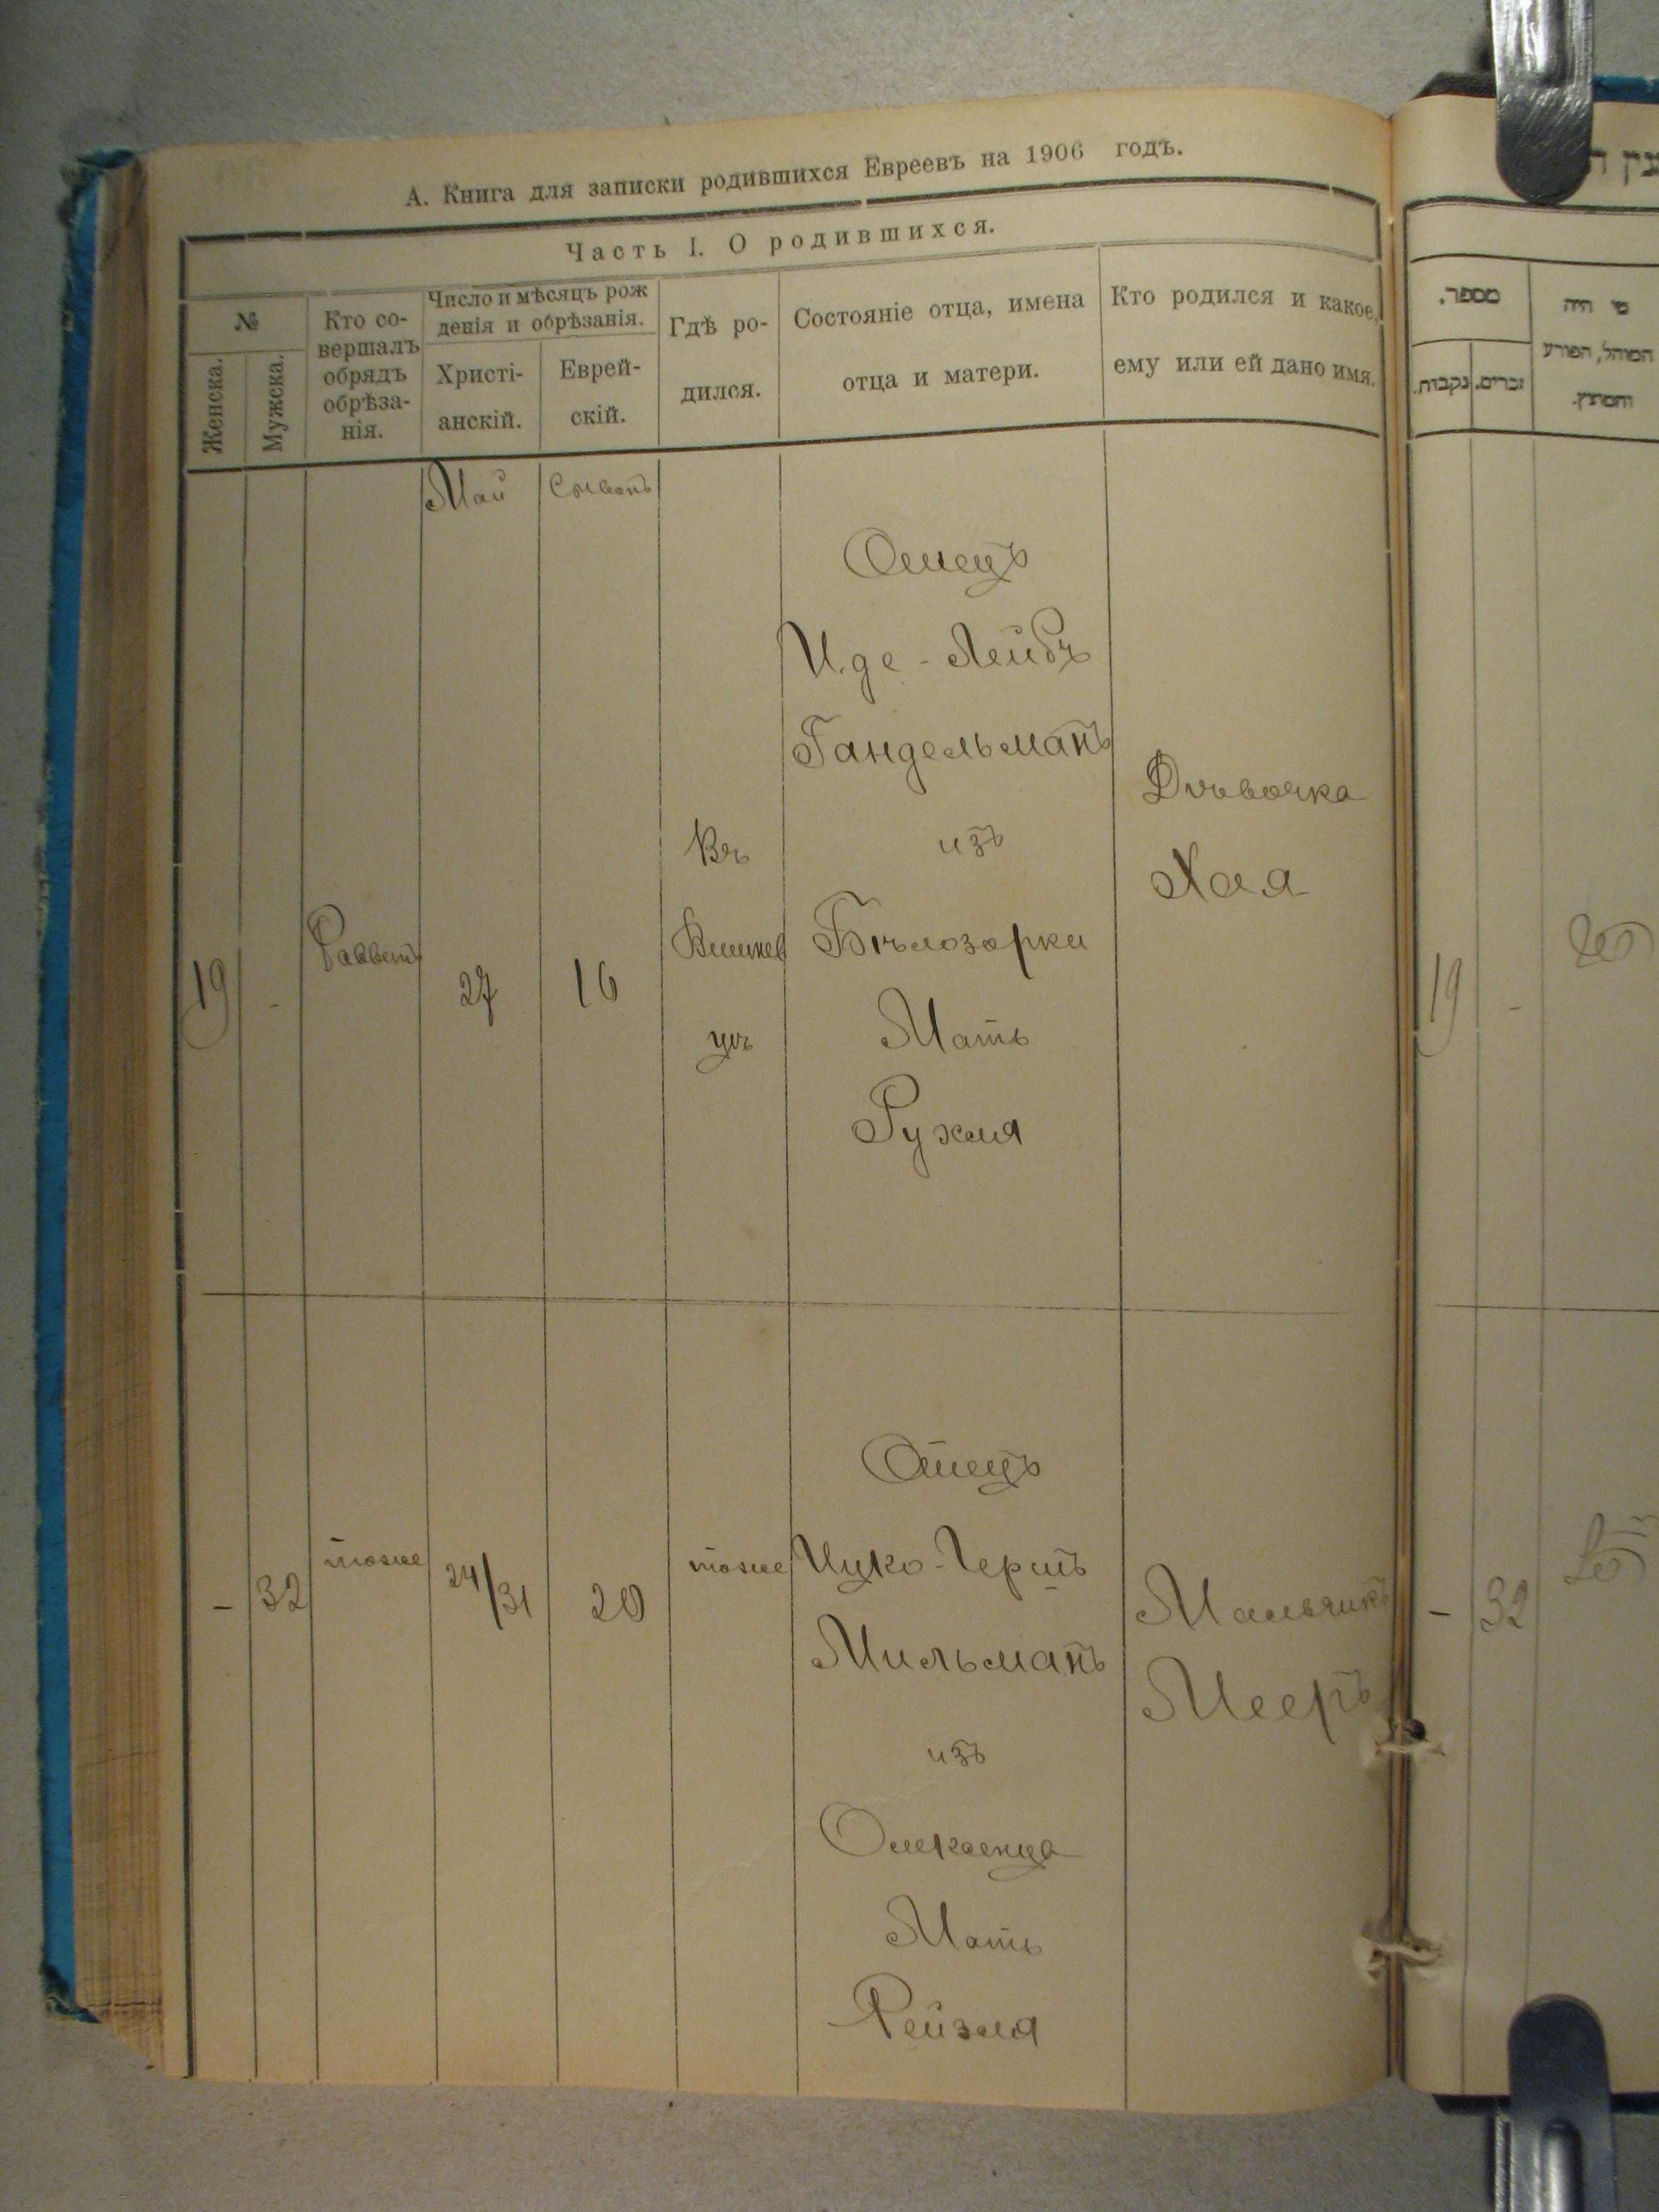 А. Книга для записки родившихся Евреевъ на 1906 годъ.
Часть I. О родившихся.
№
Женска.
Мужска.
Кто со-
вершалъ
обрядъ
обрѣза-
нія.
Число и мѣсяцъ рож
денія и обрѣзанія.
Христі-
анскій.
Еврей-
скій.
Гдѣ ро-
дился.
Состояніе отца, имена
отца и матери.
Кто родился и какое,
ему или ей дано имя.
Май
Сывонъ
19
-
Раввинъ
27
16
Въ
Вишнев
цѣ
Отецъ
Иде-Лейбъ
Гандельманъ
изъ
Бѣлозорки
Мать
Рухля
Дѣвочка
Хая
-
32
тоже
24/31
20
тоже
Отецъ
Ицко-Гершъ
Мильманъ
изъ
Олексенца
Мать
Рейзля
Мальчикъ
Мееръ
מספר.
נקבות.
זכרים.
מי היה
המוהל, הפורע
והמוצץ.
19
-
-
32